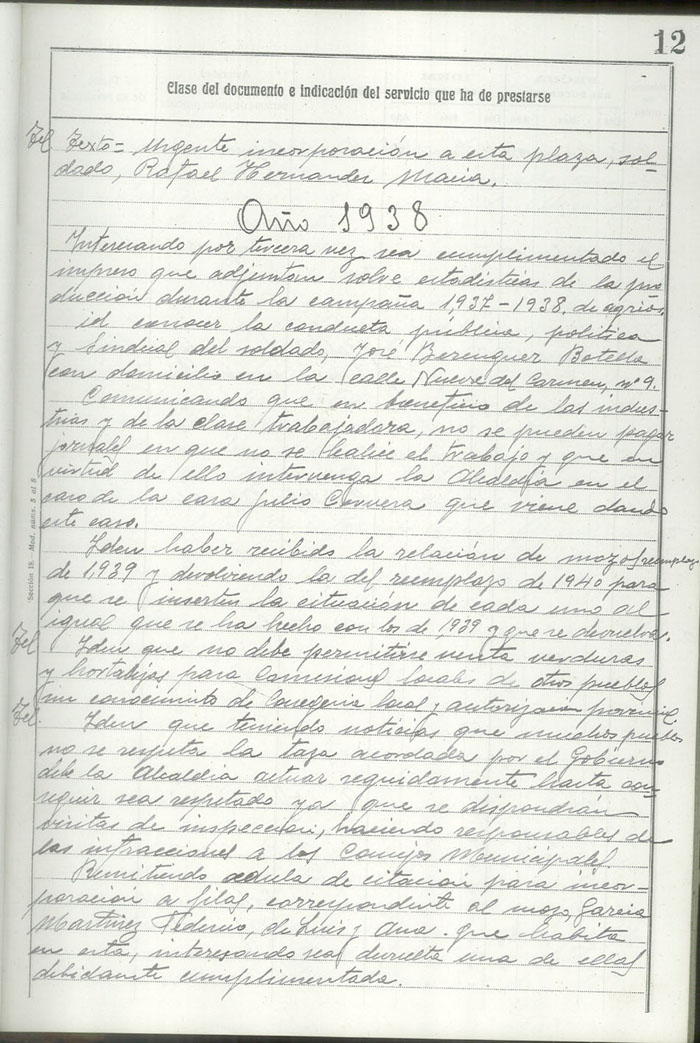 12
Clase del documento e indicación del servicio que ha de prestarse
Tel Texto = Urgente incorporación a esta plaza, sol-
dado, Rafael Hernandez Macia.
Año 1938
Interesando por tercera vez sea cumplimentado el
impreso que adjuntan sobre estadisticas de la pro
ducción durante la campaña 1937-1938, de agrios.
id conocer la conducta publica, politica
y Sindical del soldado, José Berenguer Botella
con domicilio en la calle Nueve del Carmen, nº 9.
Comunicando que en beneficio de las indus-
trias y de la clase trabajadora, no se pueden pagar
jornales en que no se realice el trabajo y que en
virtud de ello intervenga la Alcaldia en el
caso de la casa Julio Cervera que viene dando
este caso.
Iden haber recibido la relación de mozos reemplazo
de 1,939 y devolviendo la del reemplazo de 1940 para
que se inserten la situación de cada uno al
igual que se ha hecho con los de 1,939 y que se devuelva.
Tel Iden que no debe permitirse venta verduras
y hortalizas para Comisiones locales de otros pueblos
sin conocimto de Consegeria local y autorización provincial.
Tel. Iden que teniendo noticias que muchos pueblos
no se respeta la taza acordada por el Gobierno
debe la Alcaldia actuar seguidamente hasta con-
seguir sea respetado ya que se dispondrán
visitas de inspeccion, haciendo responsables de
las infracciones a los Consejos Municipales.
Remitiendo cedula de citación para incor-
poración a filas, correspondiente al mozo, Garcia
Martinez Federico, de Luis y Ana. que habita
en esta, interesando sea devuelta una de ellas
debidamte cumplimentada.
Sección 18.-Mod. núms. 5 al 8